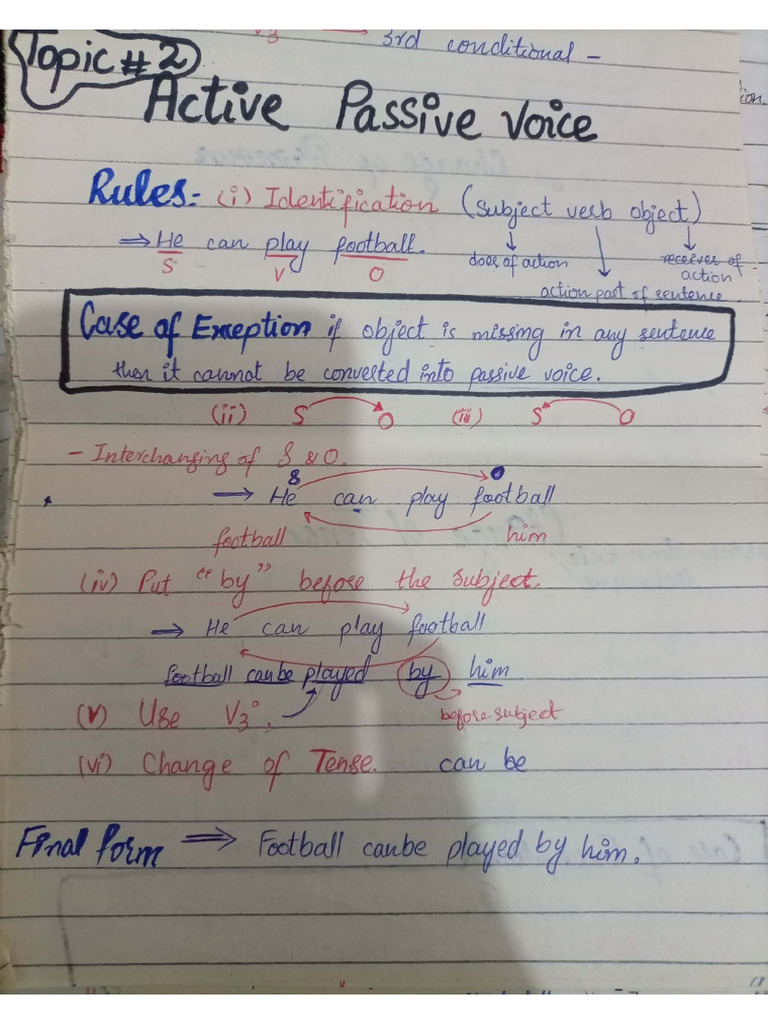 V3 → 3rd conditional -
Topic # 2
Active Passive Voice
Rules:- (i) Identification (subject verb object)
⇒ He can play football.
S V O
doer of action
receiver of action
action part of sentence.
Case of Exception if object is missing in any sentence
then it cannot be converted into passive voice.
(ii) S O (iii) S O
- Interchanging of S & O.
S O
→ He can play football
football him
(iv) Put "by" before the subject.
→ He can play football
football canbe played by him
(v) Use V3°. before subject
(vi) Change of Tense. can be
Final form ⇒ Football canbe played by him.